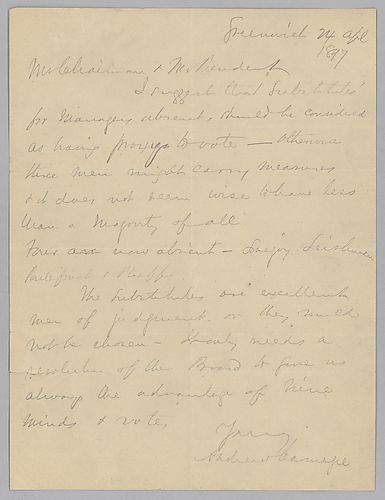 Greenwich 24 Apl
1897
Mr Chairman & Mr President
I suggest that Substitutes
for Managers absent, should be considered
as having proxys to vote — Otherwise
three men might carry measures
& it does not seem wise to have less
than a Majority of all
Four are now absent — Leishman
& Phipps
The Substitutes are excellent
men of judgment or they would
not be chosen — it only needs a
resolution of the Board to give us
always the advantage of Nine
minds & votes
Yours
Andrew Carnegie